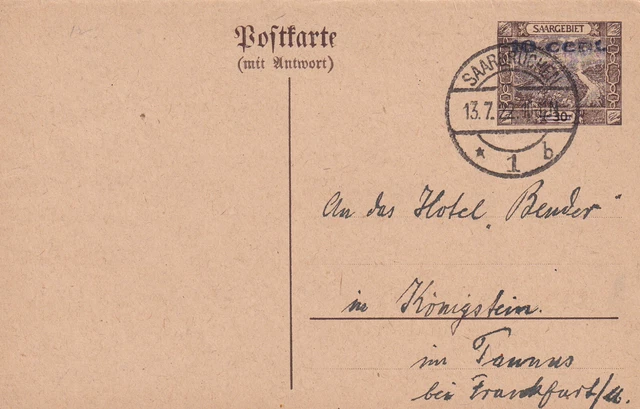 Postkarte
(mit Antwort)
SAARGEBIET
10 Cent.
30
SAARBRÜCKEN
13.7.22.
* 1 b
An das Hotel „Bender“
in Königstein.
im Taunus
bei Frankfurt/M.